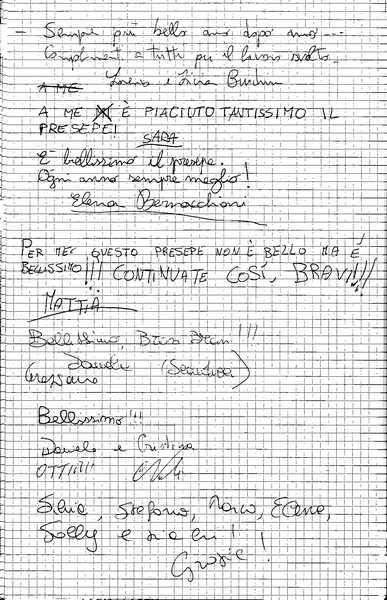 - Sempre più bello anno dopo anno...
Complimenti a tutti per il lavoro svolto.
Lorenzo e Silvia
A ME
A ME È PIACIUTO TANTISSIMO IL
PRESEPE!
SARA
È bellissimo il presepe.
Ogni anno sempre meglio!
Elena Bernacchioni
PER ME QUESTO PRESEPE NON È BELLO MA È
BELLISSIMO!!! CONTINUATE COSÌ, BRAVI!!!!
MATTIA
Bellissimo, Bravi Bravi!!!
Bellissimo!!!
Daniele e Cristina
OTTIMI!!
Silvia, Stefano, Marco, Elena,
Sally e
Grazie!